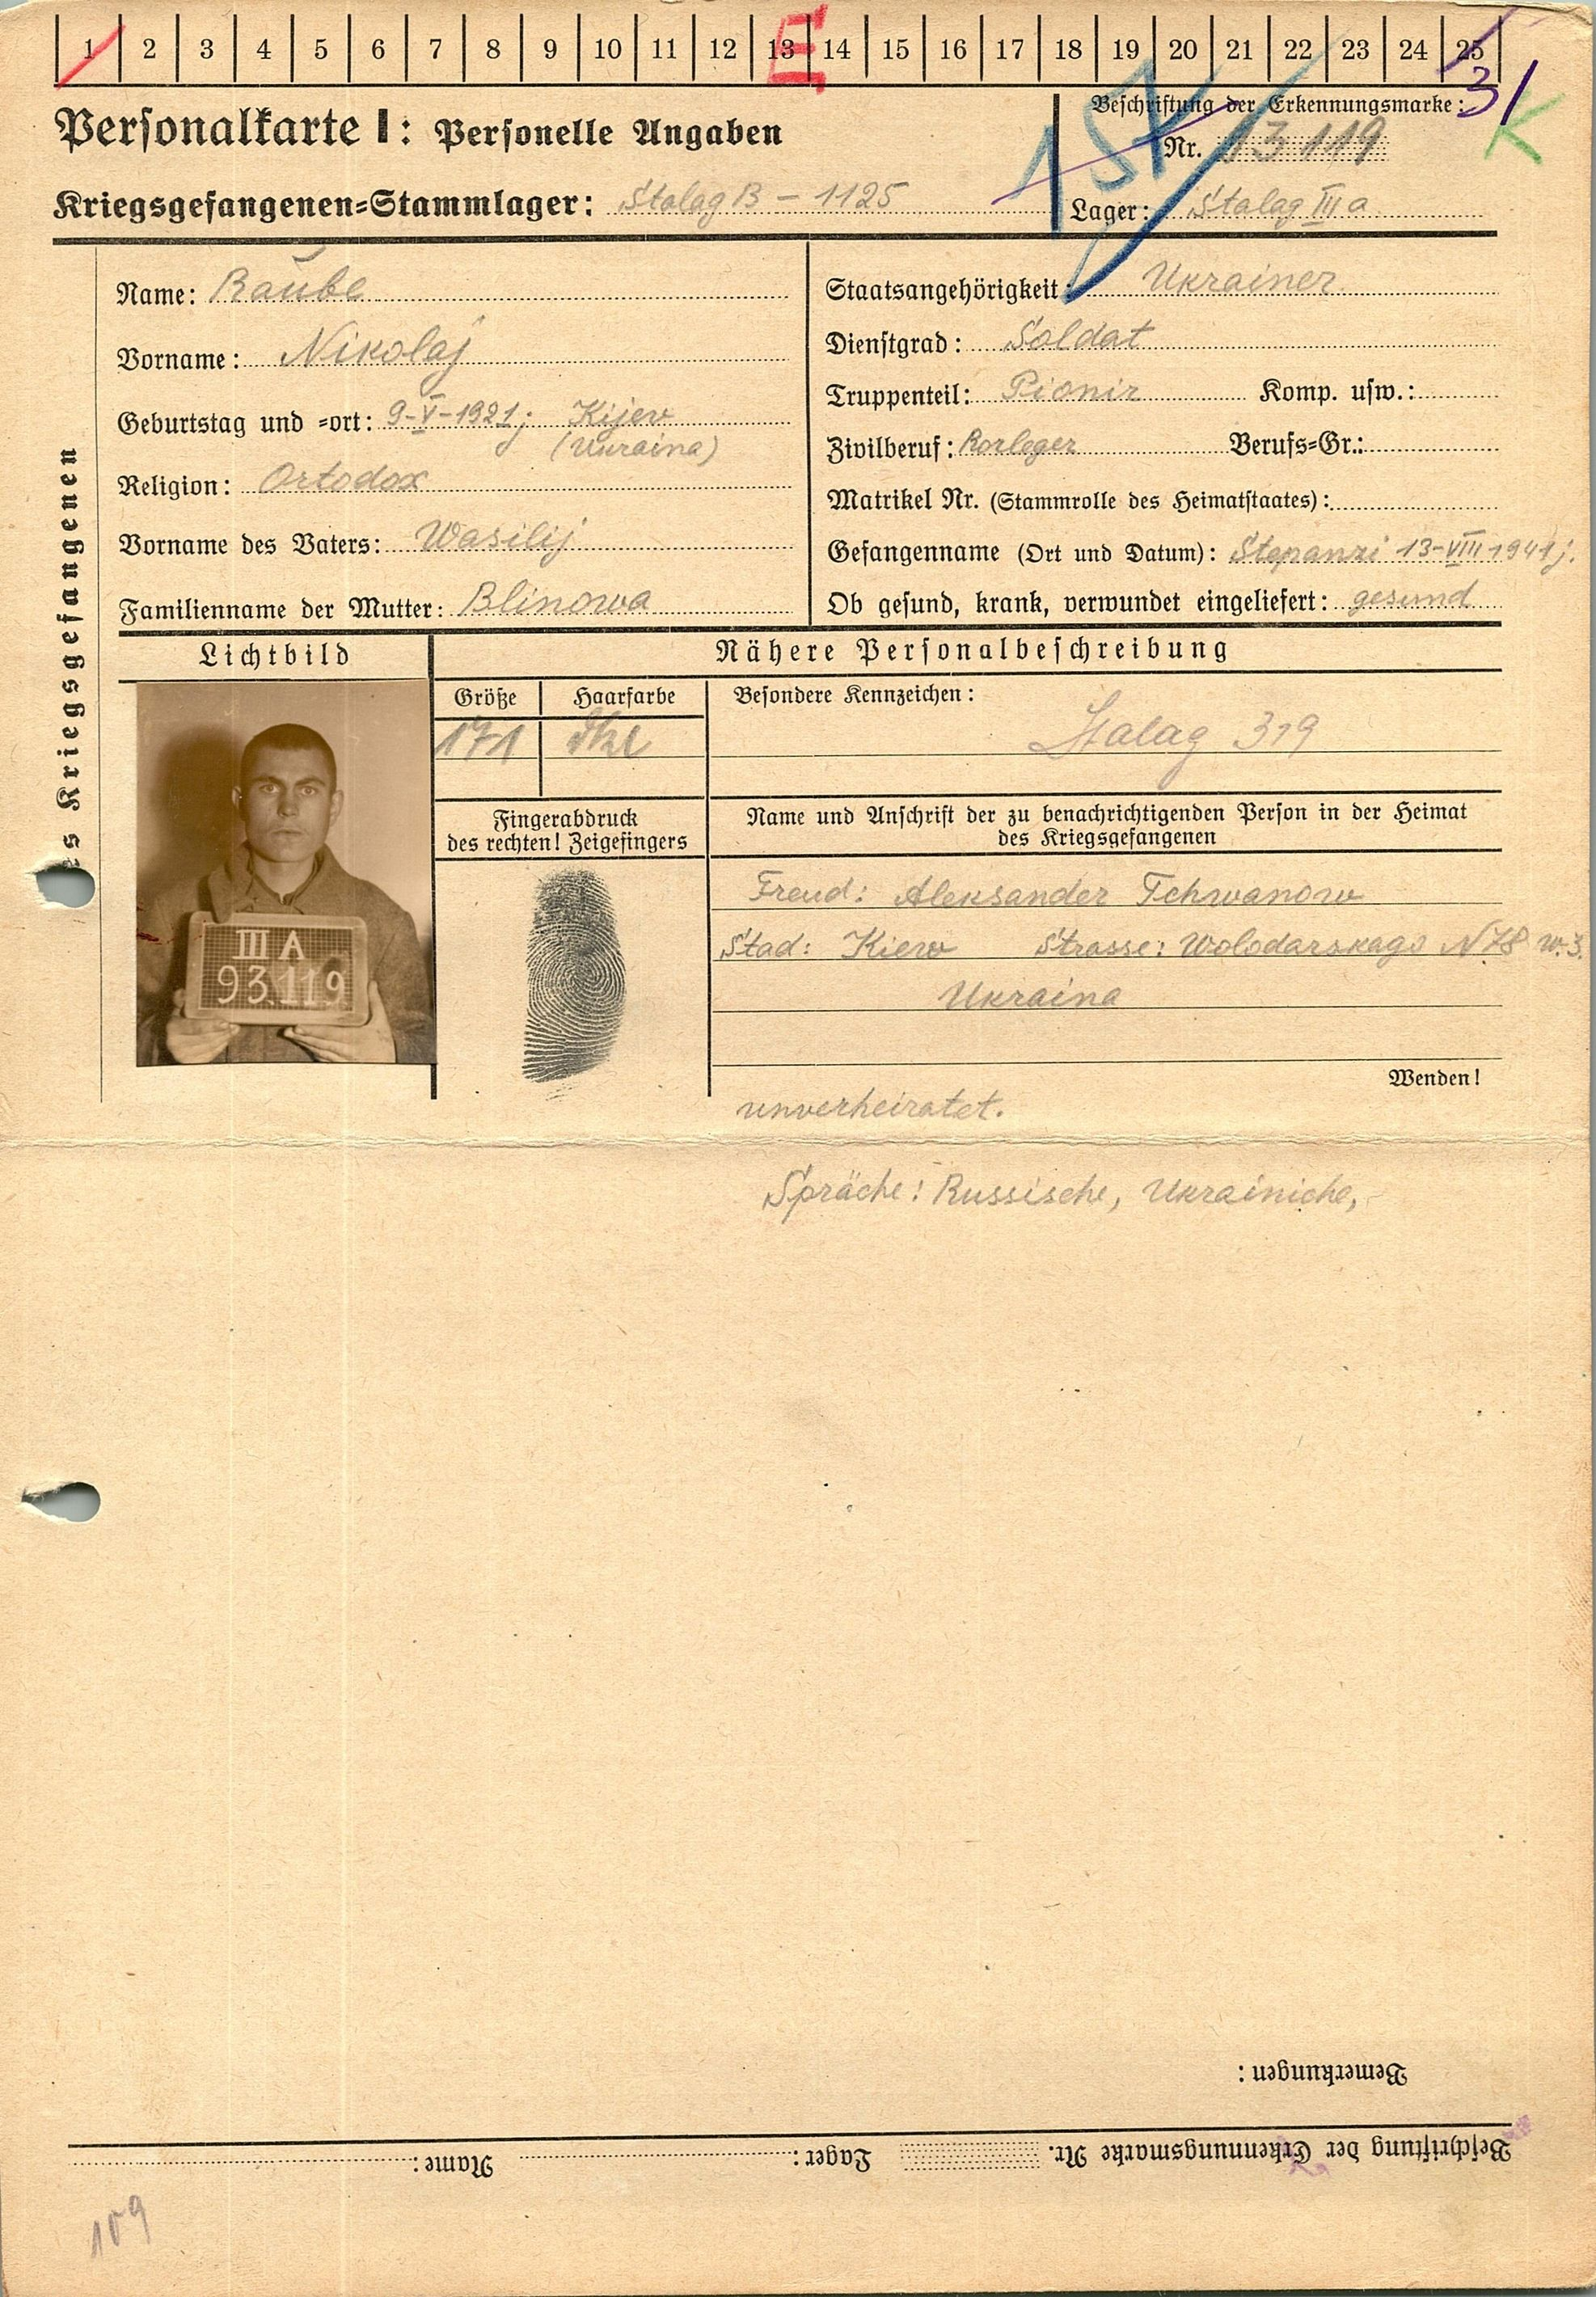 1 2 3 4 5 6 7 8 9 10 11 12 13 14 15 16 17 18 19 20 21 22 23 24 25
E
3/
K
Personalkarte I: Personelle Angaben
Beschriftung der Erkennungsmarke:
Nr. 93119
Kriegsgefangenen=Stammlager: Stalag B – 1125
Lager: Stalag III a
des Kriegsgefangenen
Name: Raube
Vorname: Nikolaj
Geburtstag und =ort: 9-V-1921j Kijew
(Ukraina)
Religion: Ortodox
Vorname des Vaters: Wasilij
Familienname der Mutter: Blinowa
Staatsangehörigkeit: Ukrainer
Dienstgrad: Soldat
Truppenteil: Pionir Komp. usw.:
Zivilberuf: Rorleger Berufs=Gr.:
Matrikel Nr. (Stammrolle des Heimatstaates):
Gefangenname (Ort und Datum): Stepanzi 13-VIII 1941j.
Ob gesund, krank, verwundet eingeliefert: gesund
Lichtbild
III A
93119
Nähere Personalbeschreibung
Größe Haarfarbe
171
Besondere Kennzeichen:
Stalag 319
Fingerabdruck
des rechten! Zeigefingers
Name und Anschrift der zu benachrichtigenden Person in der Heimat
des Kriegsgefangenen
Freud: Aleksander Tchwanow
Stad: Kiew Strasse: Wolodarskago N 78 w.3.
Ukraina
Wenden!
unverheiratet.
Spräche: Russische, Ukrainiche,
Bemerkungen:
Beschriftung der Erkennungsmarke Nr. Lager: Name:
109